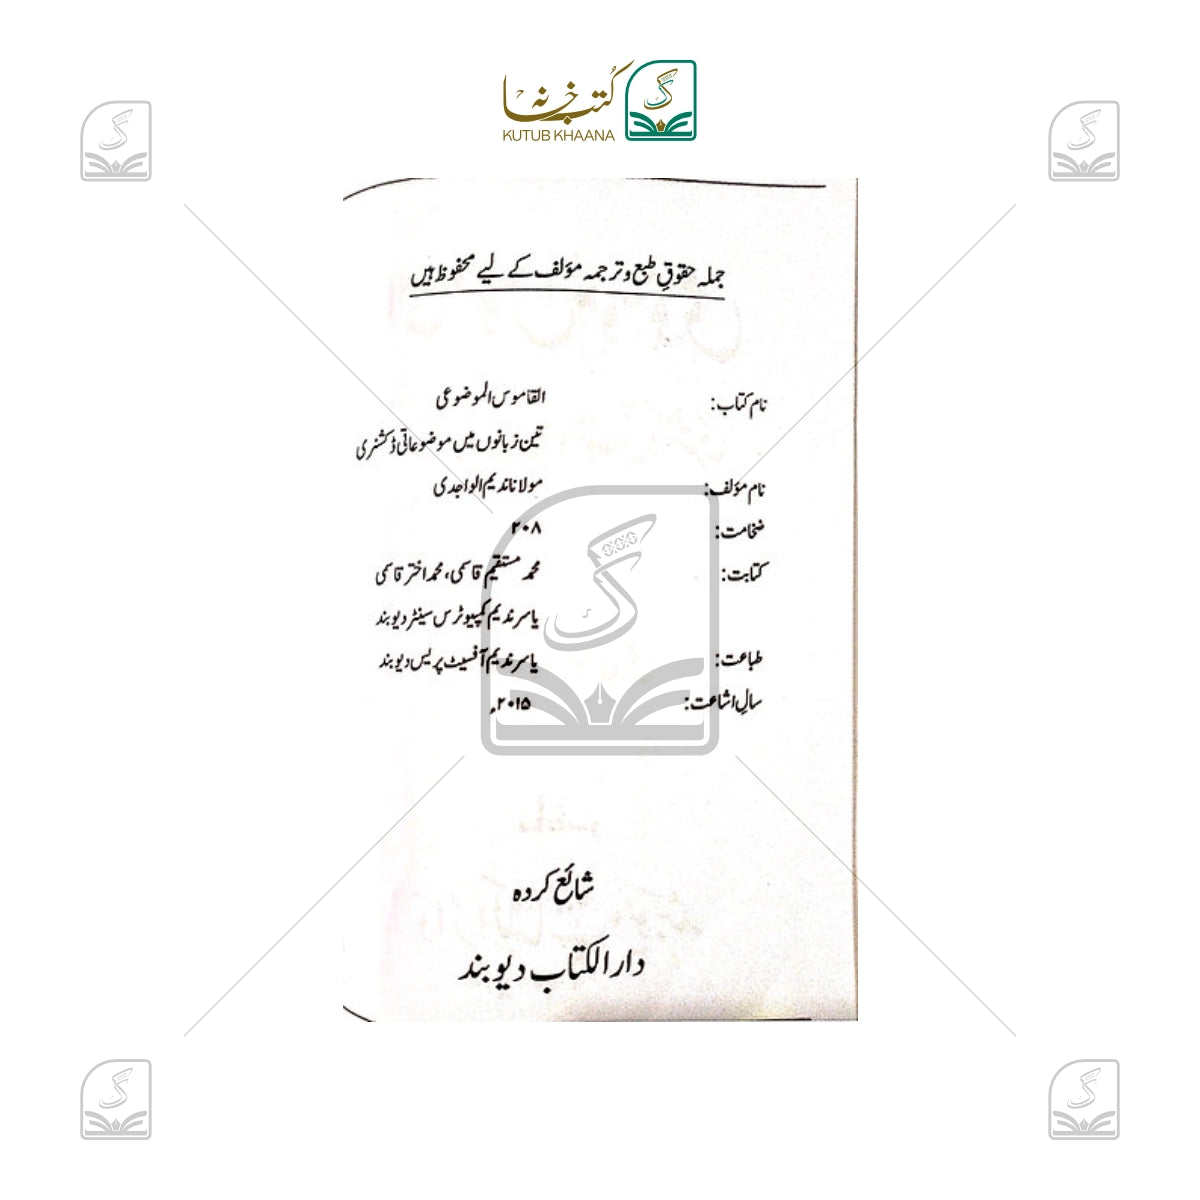 کُتب خانہ
KUTUB KHAANA
جملہ حقوقِ طبع و ترجمہ مؤلف کے لیے محفوظ ہیں
نام کتاب: القاموس الموضوعی
تین زبانوں میں موضوعاتی ڈکشنری
نام مؤلف: مولانا ندیم الواجدی
ضخامت: ۲۰۸
کتابت: محمد مستقیم قاسمی، محمد اختر قاسمی
یاسر ندیم کمپیوٹرس سینٹر دیوبند
طباعت: یاسر ندیم آفسیٹ پریس دیوبند
سالِ اشاعت: ۲۰۱۵ء
شائع کردہ
دار الکتاب دیوبند